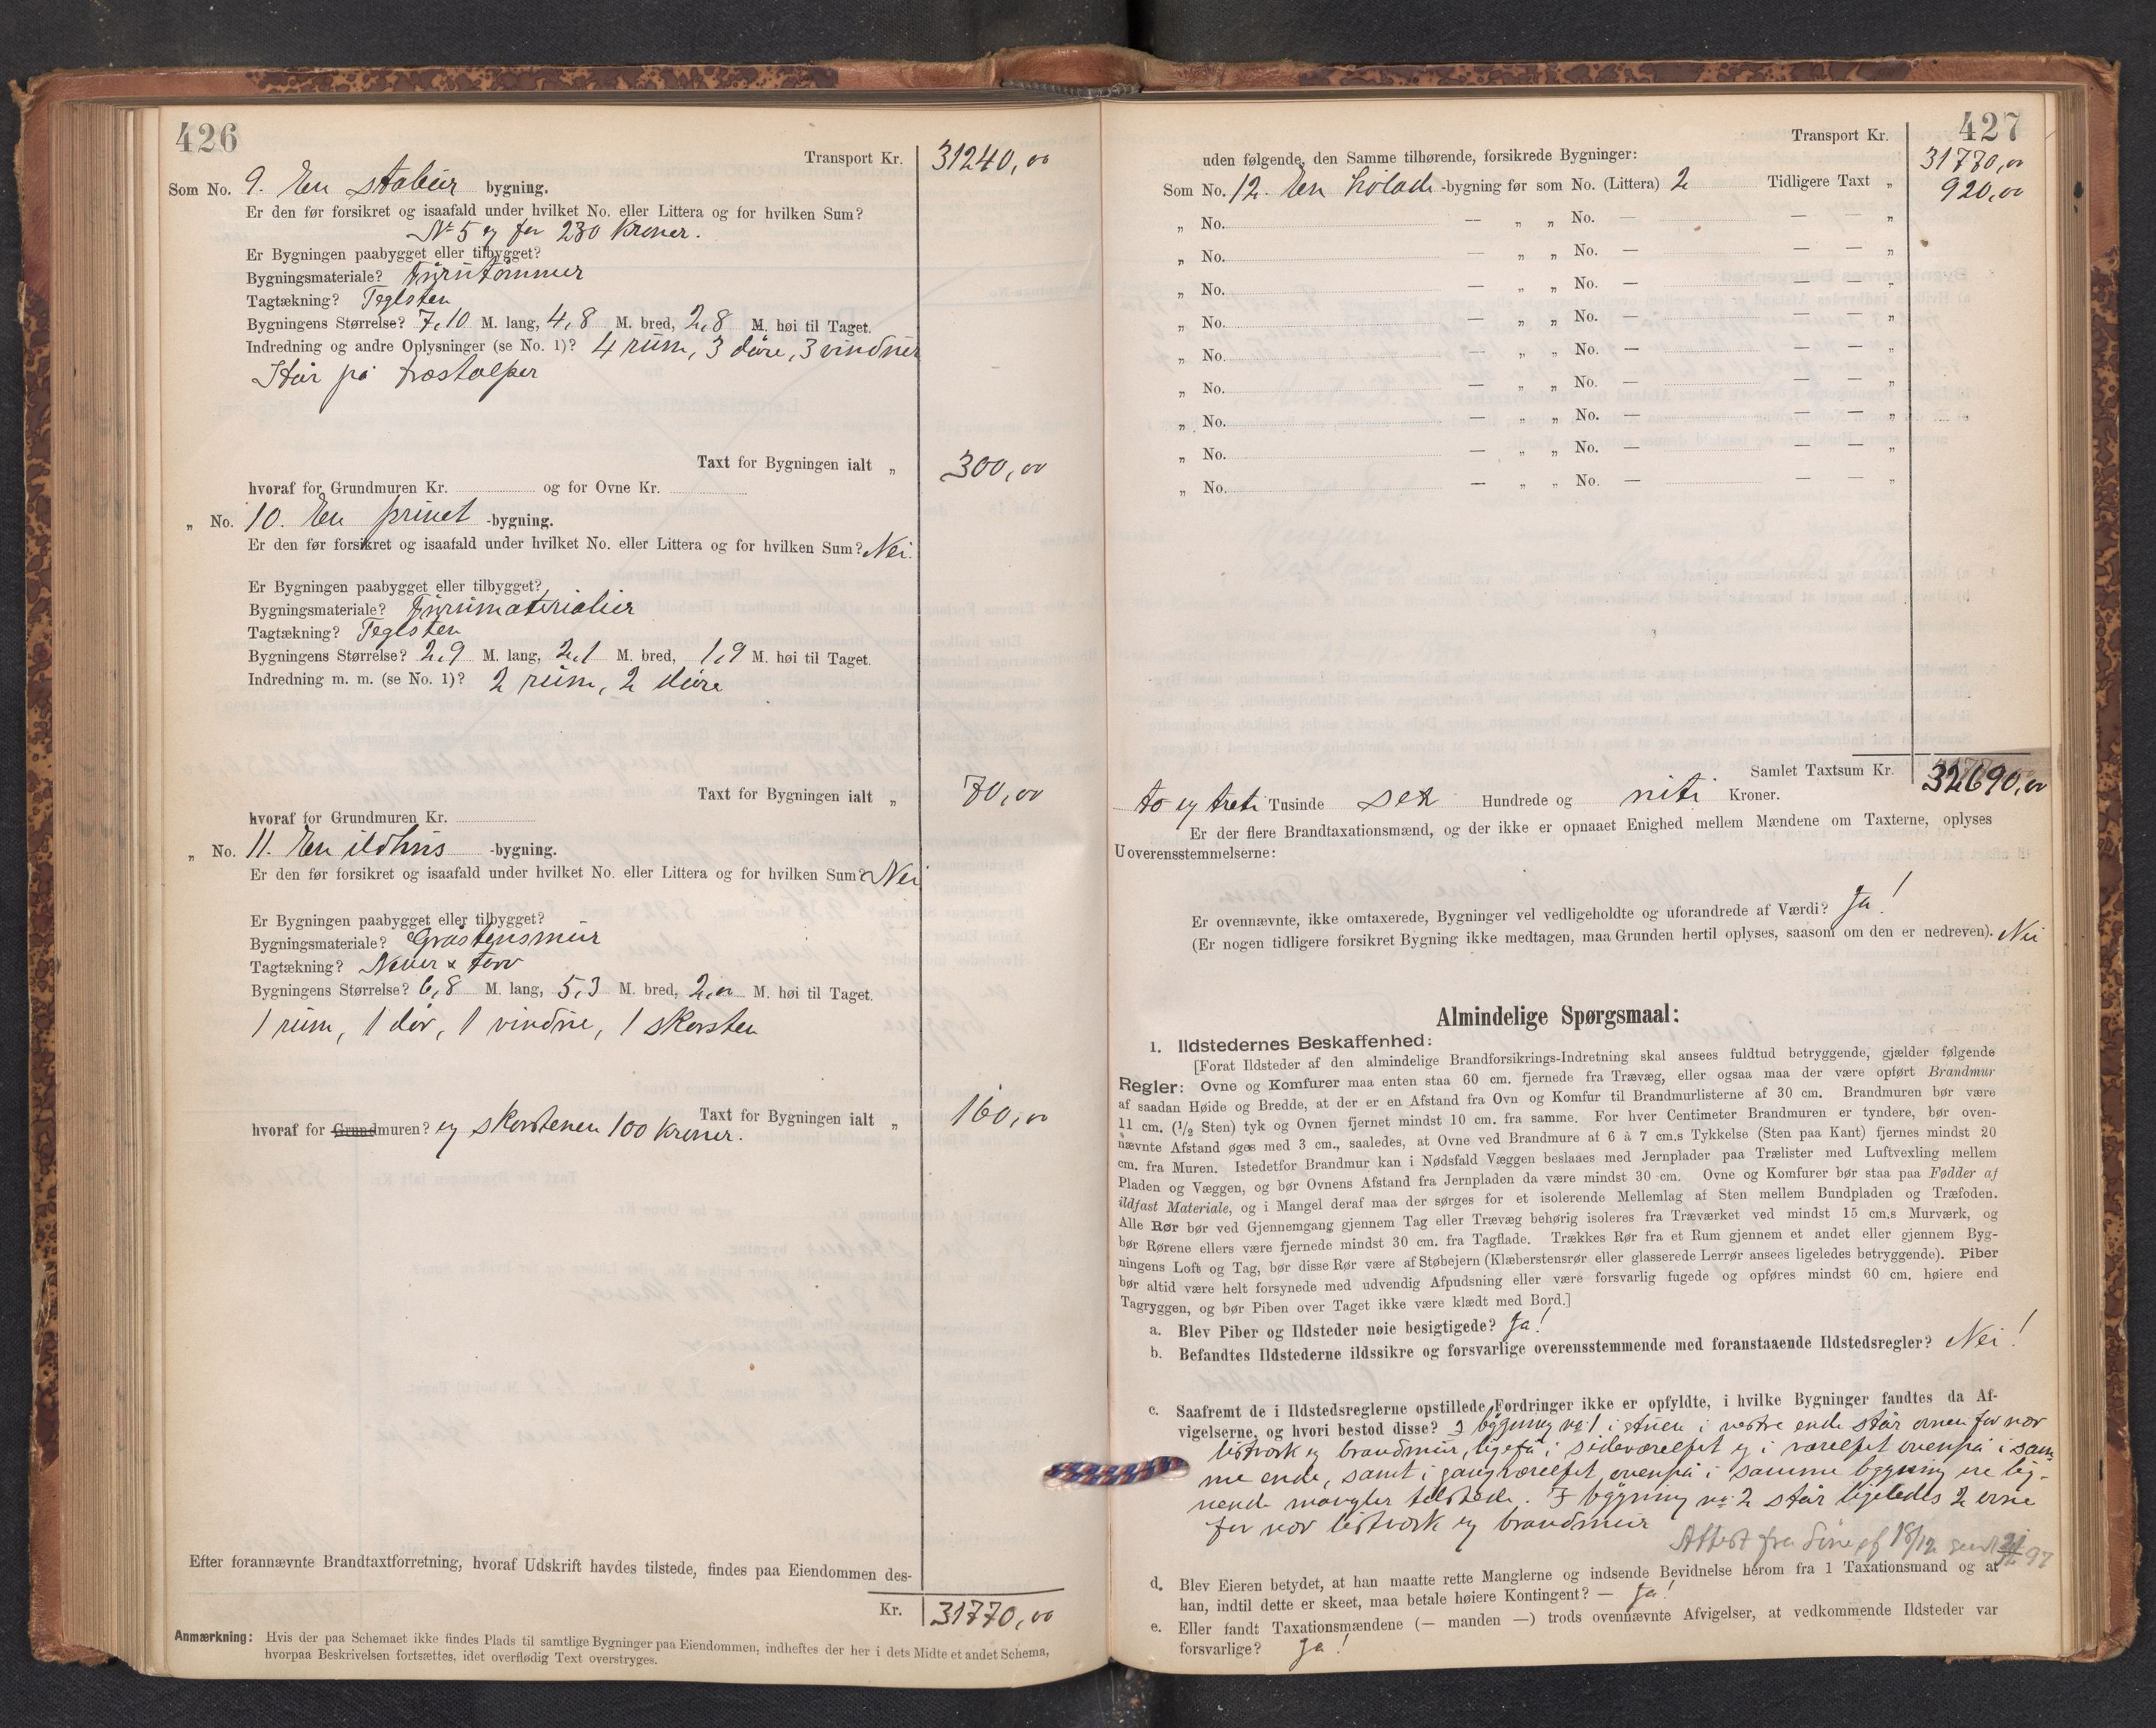 426
Transport Kr. 31240,00
Som No. 9. En stabur bygning.
Er den før forsikret og isaafald under hvilket No. eller Littera og for hvilken Sum?
No 5 og for 230 Kroner.
Er Bygningen paabygget eller tilbygget?
Bygningsmateriale? Furutømmer
Tagtækning? Teglsten
Bygningens Størrelse? 7,10 M. lang, 4,8 M. bred, 2,8 M. høi til Taget.
Indredning og andre Oplysninger (se No. 1)? 4 rum, 3 døre, 3 vinduer
Står på træstolper
Taxt for Bygningen ialt „ 300,00
hvoraf for Grundmuren Kr. og for Ovne Kr.
„ No. 10. En privet -bygning.
Er den før forsikret og isaafald under hvilket No. eller Littera og for hvilken Sum? Nei.
Er Bygningen paabygget eller tilbygget?
Bygningsmateriale? Furumaterialier
Tagtækning? Teglsten
Bygningens Størrelse? 2,9 M. lang, 2,1 M. bred, 1,9 M. høi til Taget.
Indredning m. m. (se No. 1)? 2 rum, 2 døre
Taxt for Bygningen ialt „ 70,00
hvoraf for Grundmuren Kr.
„ No. 11. En ildhus -bygning.
Er den før forsikret og isaafald under hvilket No. eller Littera og for hvilken Sum? Nei
Er Bygningen paabygget eller tilbygget?
Bygningsmateriale? Gråstensmur
Tagtækning? Never & torv
Bygningens Størrelse? 6,8 M. lang, 5,3 M. bred, 2,00 M. høi til Taget.
1 rum, 1 dør, 1 vindue, 1 skorsten
Taxt for Bygningen ialt „ 160,00
hvoraf for Grundmuren? og skorstenen 100 kroner.
Efter forannævnte Brandtaxtforretning, hvoraf Udskrift havdes tilstede, findes paa Eiendommen des-
Kr. 31770,00
Anmærkning: Hvis der paa Schemaet ikke findes Plads til samtlige Bygninger paa Eiendommen, indheftes der her i dets Midte et andet Schema,
hvorpaa Beskrivelsen fortsættes, idet overflødig Text overstryges.
427
Transport Kr. 31770,00
uden følgende, den Samme tilhørende, forsikrede Bygninger:
Som No. 12. En hølade -bygning før som No. (Littera) 2 Tidligere Taxt „ 920,00
„ No. — „ „ No. — — — „
„ No. — „ „ No. — — — „
„ No. — „ „ No. — — — „
„ No. — „ „ No. — — — „
„ No. — „ „ No. — — — „
„ No. — „ „ No. — — — „
„ No. — „ „ No. — — — „
„ No. — „ „ No. — — — „
„ No. — „ „ No. — — — „
Samlet Taxtsum Kr. 32690,00
to og treti Tusinde sex Hundrede og niti Kroner.
Er der flere Brandtaxationsmænd, og der ikke er opnaaet Enighed mellem Mændene om Taxterne, oplyses
Uoverensstemmelserne:
Er ovennævnte, ikke omtaxerede, Bygninger vel vedligeholdte og uforandrede af Værdi? Ja!
(Er nogen tidligere forsikret Bygning ikke medtagen, maa Grunden hertil oplyses, saasom om den er nedreven). Nei
Almindelige Spørgsmaal:
1. Ildstedernes Beskaffenhed:
[Forat Ildsteder af den almindelige Brandforsikrings-Indretning skal ansees fuldtud betryggende, gjælder følgende
Regler: Ovne og Komfurer maa enten staa 60 cm. fjernede fra Trævæg, eller ogsaa maa der være opført Brandmur
af saadan Høide og Bredde, at der er en Afstand fra Ovn og Komfur til Brandmurlisterne af 30 cm. Brandmuren bør være
11 cm. (1/2 Sten) tyk og Ovnen fjernet mindst 10 cm. fra samme. For hver Centimeter Brandmuren er tyndere, bør oven-
nævnte Afstand øges med 3 cm., saaledes, at Ovne ved Brandmure af 6 à 7 cm.s Tykkelse (Sten paa Kant) fjernes mindst 20
cm. fra Muren. Istedetfor Brandmur kan i Nødsfald Væggen beslaaes med Jernplader paa Trælister med Luftvexling mellem
Pladen og Væggen, og bør Ovnens Afstand fra Jernpladen da være mindst 30 cm. Ovne og Komfurer bør staa paa Fødder af
ildfast Materiale, og i Mangel deraf maa der sørges for et isolerende Mellemlag af Sten mellem Bundpladen og Træfoden.
Alle Rør bør ved Gjennemgang gjennem Tag eller Trævæg behørig isoleres fra Træværket ved mindst 15 cm.s Murværk, og
bør Rørene ellers være fjernede mindst 30 cm. fra Tagflade. Trækkes Rør fra et Rum gjennem et andet eller gjennem Byg-
ningens Loft og Tag, bør disse Rør være af Støbejern (Klæberstensrør eller glasserede Lerrør ansees ligeledes betryggende). Piber
bør altid være helt forsynede med udvendig Afpudsning eller være forsvarlig fugede og opføres mindst 60 cm. høiere end
Tagryggen, og bør Piben over Taget ikke være klædt med Bord.]
a. Blev Piber og Ildsteder nøie besigtigede? Ja!
b. Befandtes Ildstederne ildssikre og forsvarlige overensstemmende med foranstaaende Ildstedsregler? Nei!
c. Saafremt de i Ildstedsreglerne opstillede Fordringer ikke er opfyldte, i hvilke Bygninger fandtes da Af-
vigelserne, og hvori bestod disse? I bygning no 1 i stuen i vestre ende står ovnen for nær
listværk og brandmur, ligeså i sideværelset og i værelset ovenpå i sam-
me ende, samt i gangværelset, ovenpå i samme bygning ere lig-
nende mangler tilstede. I bygning no 2 står ligeledes 2 ovne
for nær listværk og brandmur
Attest fra 18/12 97
d. Blev Eieren betydet, at han maatte rette Manglerne og indsende Bevidnelse herom fra 1 Taxationsmand og at
han, indtil dette er skeet, maa betale høiere Kontingent? — Ja!
e. Eller fandt Taxationsmændene (— manden —) trods ovennævnte Afvigelser, at vedkommende Ildsteder var
forsvarlige? Ja!